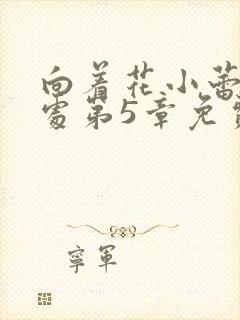 向着花小蕾
处第5章免费
寧軍